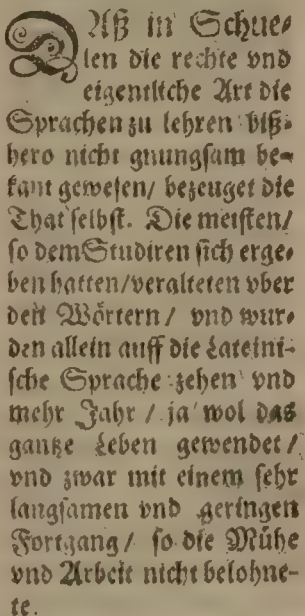 DAß in Schue⸗
len die rechte vnd
eigentliche Art die
Sprachen zu lehren biß⸗
hero nicht gnungsam be⸗
kant gewesen/ bezeuget die
That selbst. Die meisten/
so dem Studiren sich erge⸗
ben hatten/ veralteten vber
den Wörtern/ vnd wur⸗
den allein auff die Lateini⸗
sche Sprache zehen vnd
mehr Jahr / ja wol das
gantze Leben gewendet/
vnd zwar mit einem sehr
langsamen vnd geringen
Fortgang/ so die Mühe
vnd Arbeit nicht belohne⸗
te.